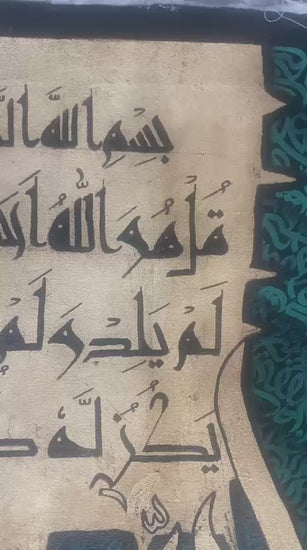 بِسْمِ اللَّهِ
قُلْ هُوَ اللَّهُ
لَمْ يَلِدْ وَلَمْ
يَكُن لَّهُ